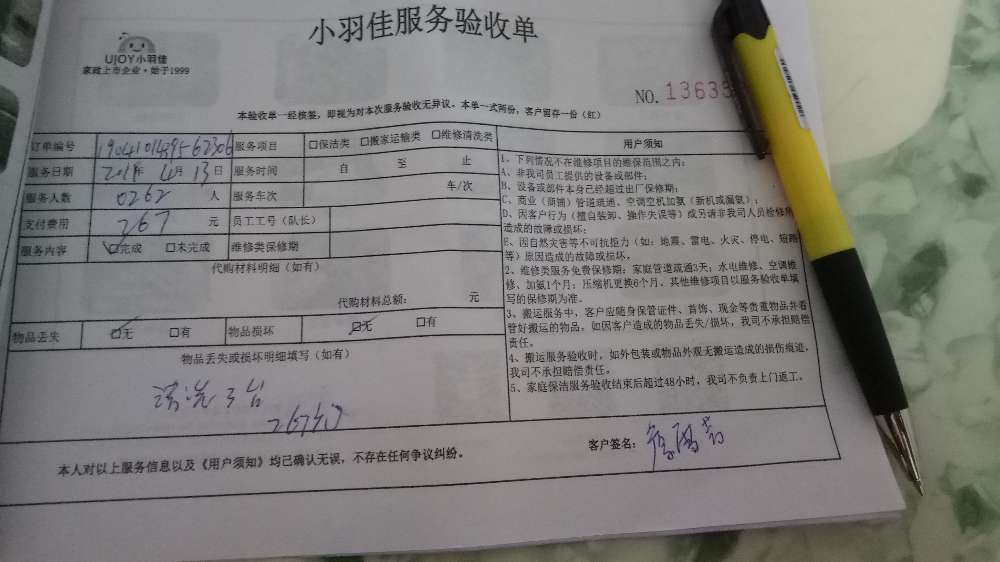 小羽佳服务验收单
UJOY小羽佳
家政上市企业·始于1999
NO. 13635
本验收单一经核签，即视为对本次服务验收无异议。本单一式两份，客户留存一份（红）
订单编号 服务项目 □保洁类 □搬家运输类 □维修清洗类
服务日期 4月13日 服务时间 自 至 止
服务人数 0262 人 服务车次 车/次
支付费用 267 元 员工工号（队长）
服务内容 ☑完成 □未完成 维修类保修期
代购材料明细（如有）
代购材料总额： 元
物品丢失 ☑无 □有 物品损坏 ☑无 □有
物品丢失或损坏明细填写（如有）
清洗3台
267
用户须知
1、下列情况不在维修项目的维保范围之内：
A、非我司员工提供的设备或部件；
B、设备或部件本身已经超过出厂保修期；
C、商业（商铺）管道疏通、空调空机加氨（新机或漏氨）；
D、因客户行为（擅自装卸、操作失误等）或另请非我司人员检修所
造成的故障或损坏；
E、因自然灾害等不可抗拒力（如：地震、雷电、火灾、停电、短路
等）原因造成的故障或损坏。
2、维修类服务免费保修期：家庭管道疏通3天；水电维修、空调维
修、加氨1个月；压缩机更换6个月。其他维修项目以服务验收单填
写的保修期为准。
3、搬运服务中，客户应随身保管证件、首饰、现金等贵重物品并看
管好搬运的物品。如因客户造成的物品丢失/损坏，我司不承担赔偿
责任。
4、搬运服务验收时，如外包装或物品外观无搬运造成的损伤痕迹，
我司不承担赔偿责任。
5、家庭保洁服务验收结束后超过48小时，我司不负责上门返工。
本人对以上服务信息以及《用户须知》均已确认无误，不存在任何争议纠纷。
客户签名：